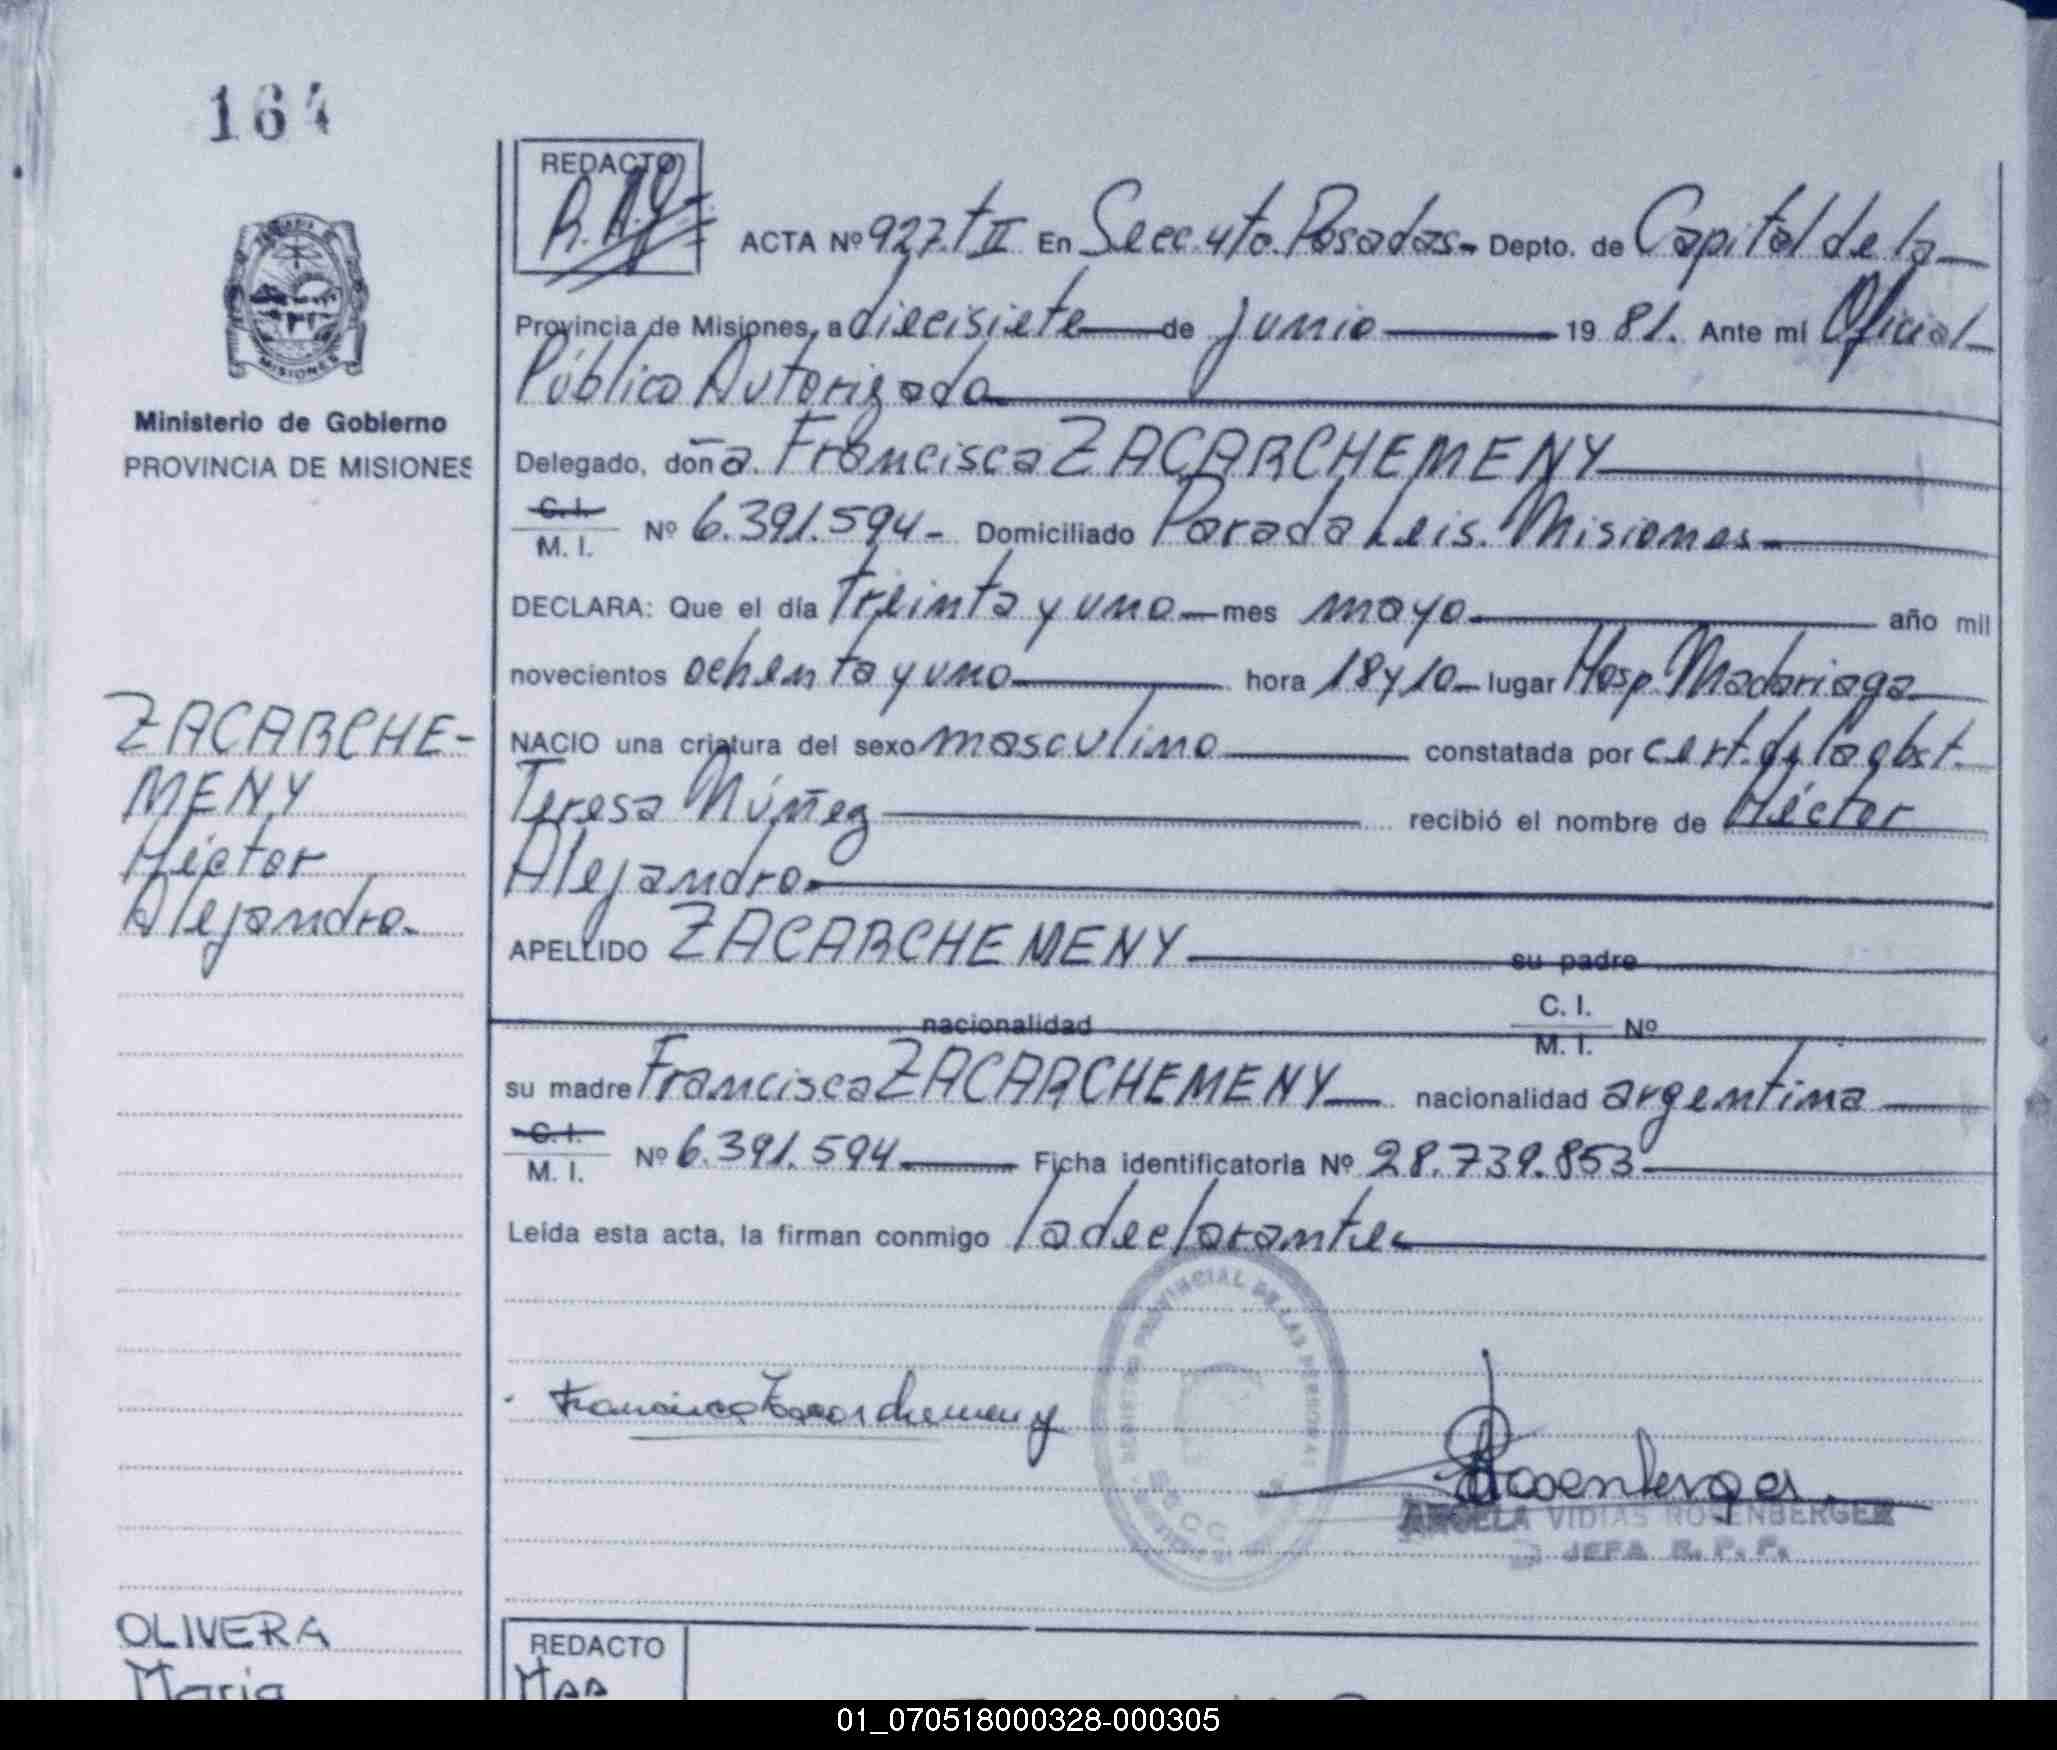 164
MISIONES
Ministerio de Gobierno
PROVINCIA DE MISIONES
ZACARCHE-
MENY
Héctor
Alejandro.
REDACTO
ACTA Nº 927. t II En Secc. 4ta. Posadas. Depto. de Capital de la
Provincia de Misiones, a diecisiete de junio 19 81. Ante mí Oficial
Público Autorizado
Delegado, doña. Francisca ZACARCHEMENY
C. I.
M. I. Nº 6.391.594 - Domiciliado Parada Leis. Misiones
DECLARA: Que el día treinta y uno mes mayo año mil
novecientos ochenta y uno hora 18 y 10 lugar Hosp. Madariaga
NACIO una criatura del sexo masculino constatada por cert. de la obst.
Teresa Núñez recibió el nombre de Héctor
Alejandro.
APELLIDO ZACARCHEMENY su padre
nacionalidad C. I.
M. I. Nº
su madre Francisca ZACARCHEMENY nacionalidad argentina
C. I.
M. I. Nº 6.391.594 Ficha identificatoria Nº 28.739.853
Leída esta acta, la firman conmigo la declarante.
REGISTRO PROVINCIAL DE LAS PERSONAS
Francisca Zacarchemeny
Rosenberger
ANGELA VIDIAS ROSENBERGER
JEFA R. P. P.
OLIVERA
María
REDACTO
01_070518000328-000305